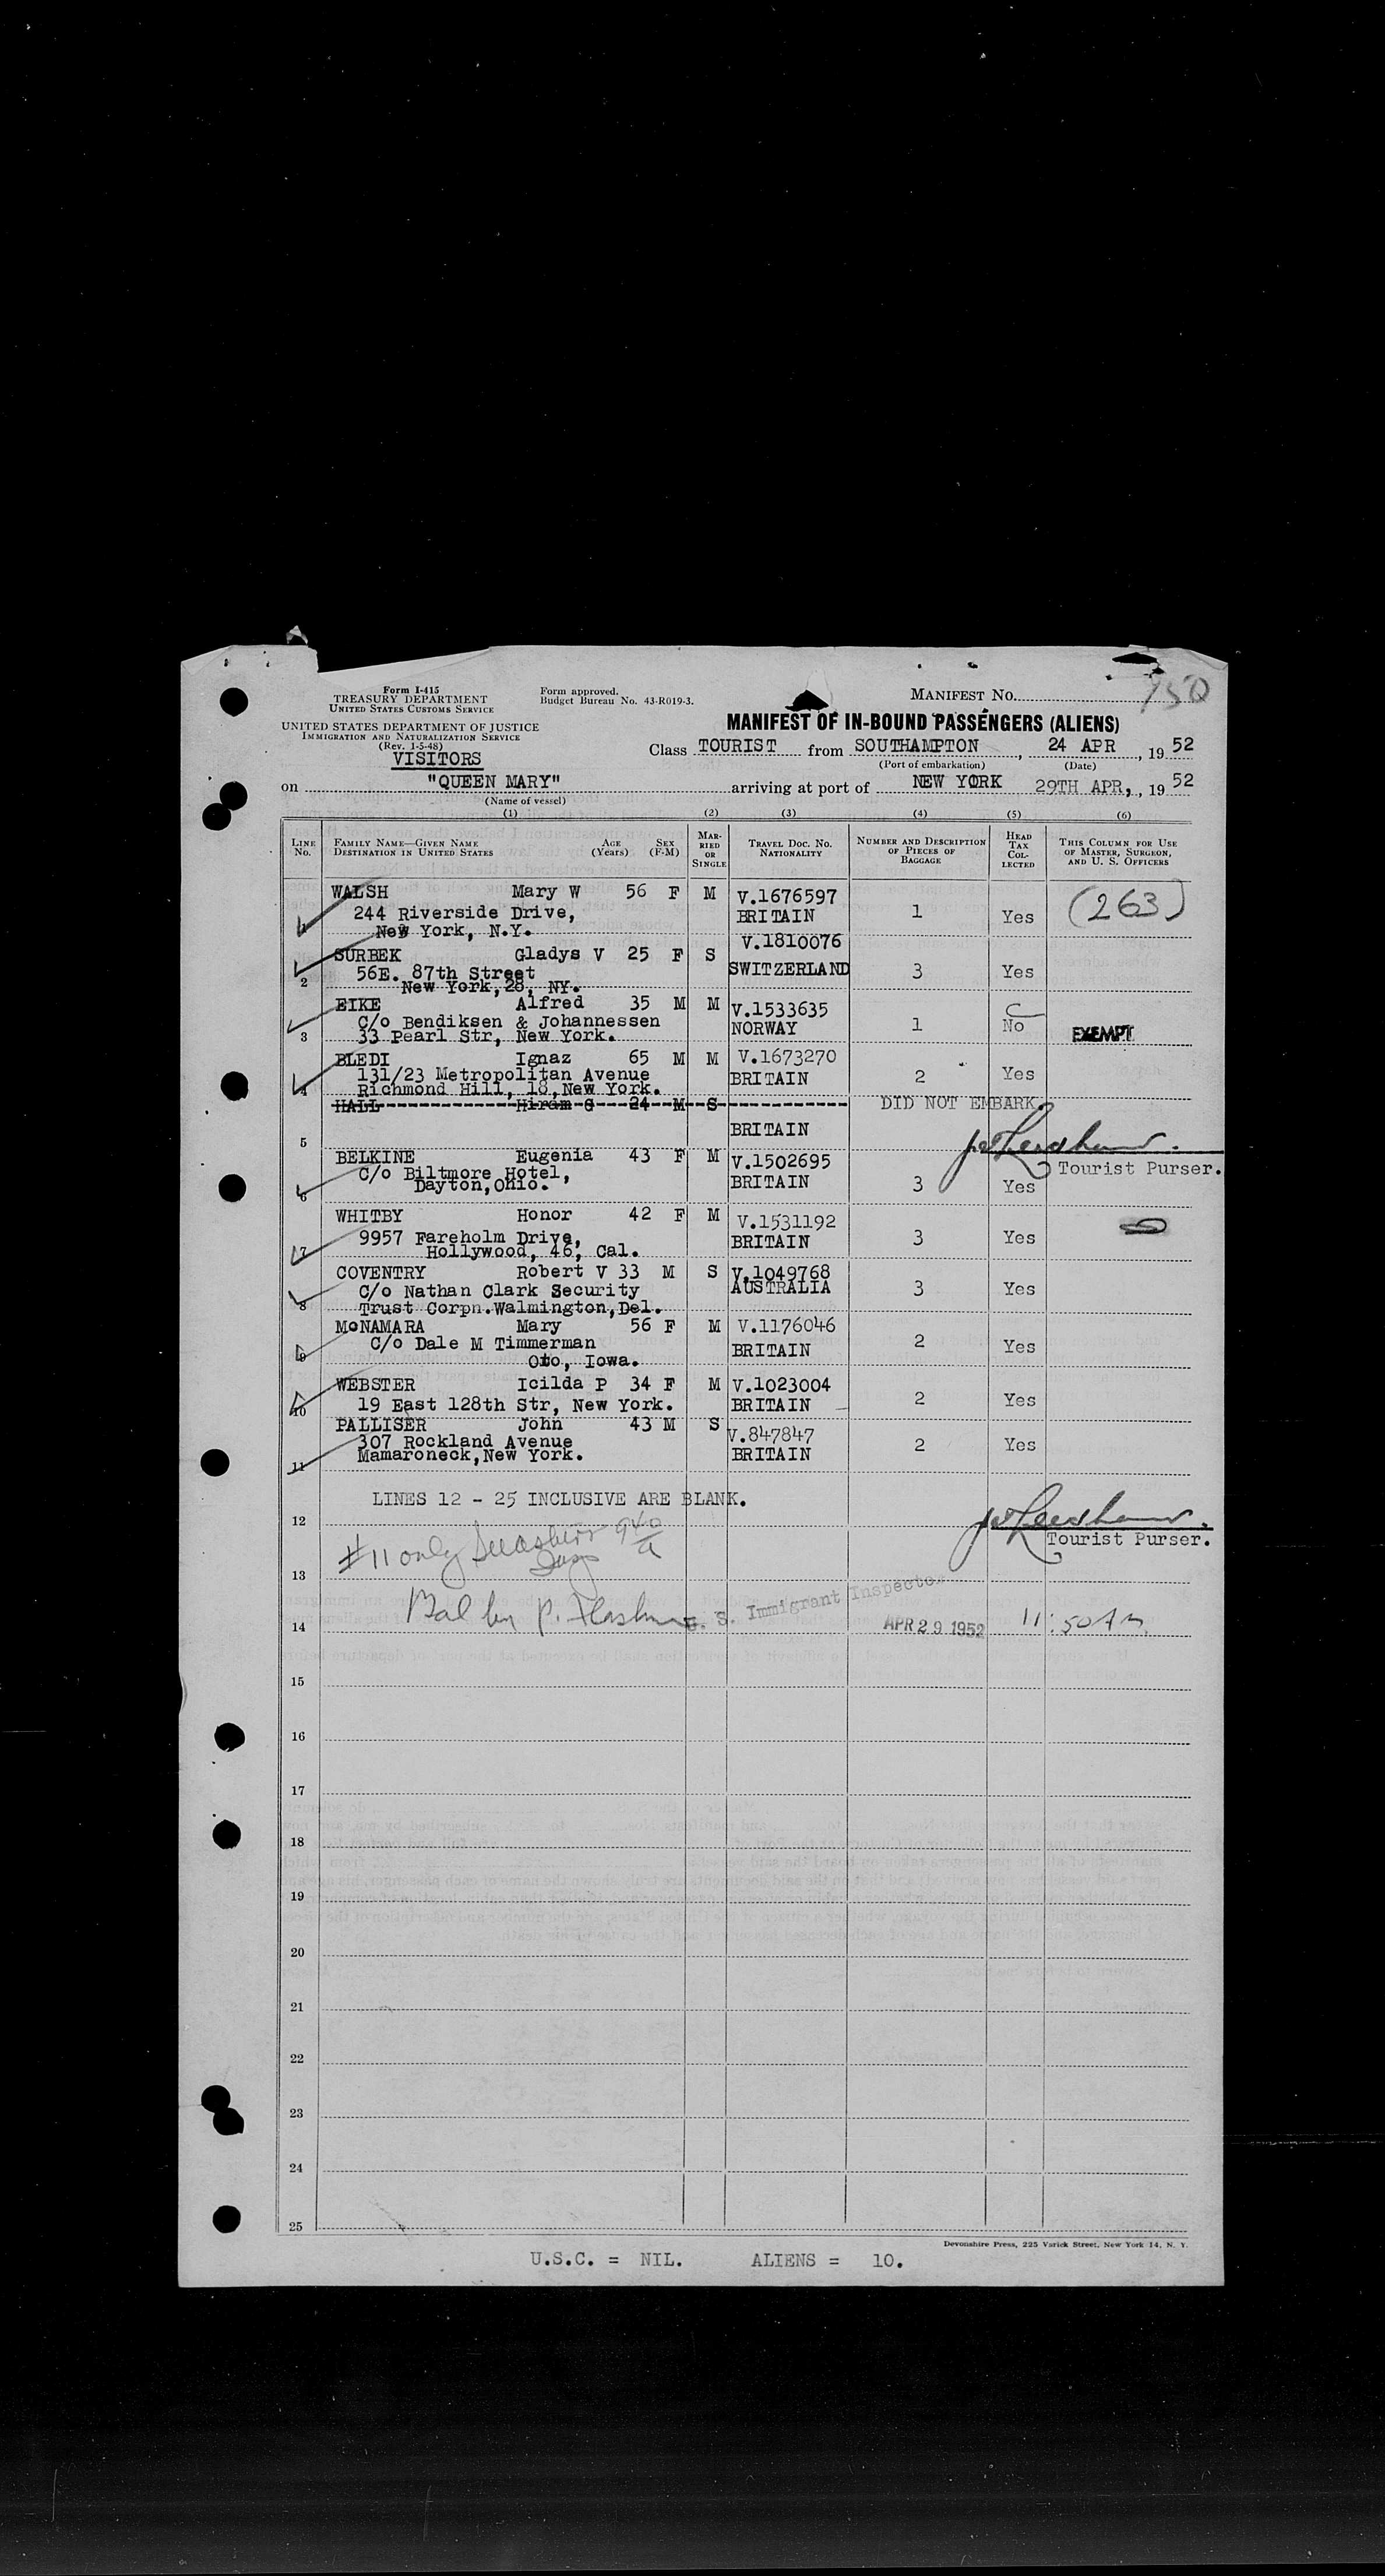 Form I-415
TREASURY DEPARTMENT
UNITED STATES CUSTOMS SERVICE
Form approved.
Budget Bureau No. 43-R019-3.
MANIFEST NO.
UNITED STATES DEPARTMENT OF JUSTICE
IMMIGRATION AND NATURALIZATION SERVICE
(Rev. 1-5-48)
VISITORS
MANIFEST OF IN-BOUND PASSENGERS (ALIENS)
Class TOURIST from SOUTHAMPTON, 24 APR, 1952
(Port of embarkation) (Date)
on "QUEEN MARY" arriving at port of NEW YORK 29TH APR, 1952
(Name of vessel)
(1) (2) (3) (4) (5) (6)
LINE NO. FAMILY NAME—GIVEN NAME DESTINATION IN UNITED STATES AGE (Years) SEX (F-M) MARRIED OR SINGLE TRAVEL DOC. NO. NATIONALITY NUMBER AND DESCRIPTION OF PIECES OF BAGGAGE HEAD TAX COLLECTED THIS COLUMN FOR USE OF MASTER, SURGEON, AND U. S. OFFICERS
1 WALSH Mary W 56 F M V.1676597 (263)
244 Riverside Drive, BRITAIN 1 Yes
New York, N.Y.
2 SURBEK Gladys V 25 F S V.1810076
56E. 87th Street SWITZERLAND 3 Yes
New York, 28, NY.
3 EIKE Alfred 35 M M V.1533635
C/o Bendiksen & Johannessen NORWAY 1 No EXEMPT
33 Pearl Str, New York.
4 BLEDI Ignaz 65 M M V.1673270
131/23 Metropolitan Avenue BRITAIN 2 Yes
Richmond Hill, 18, New York.
HALL Hiram G 24 M S DID NOT EMBARK
5 BRITAIN
Tourist Purser.
6 BELKINE Eugenia 43 F M V.1502695
C/o Biltmore Hotel, BRITAIN 3 Yes
Dayton, Ohio.
7 WHITBY Honor 42 F M V.1531192
9957 Fareholm Drive, BRITAIN 3 Yes
Hollywood, 46, Cal.
8 COVENTRY Robert V 33 M S V.1049768
C/o Nathan Clark Security AUSTRALIA 3 Yes
Trust Corpn. Walmington, Del.
9 McNAMARA Mary 56 F M V.1176046
C/o Dale M Timmerman BRITAIN 2 Yes
Oto, Iowa.
10 WEBSTER Icilda P 34 F M V.1023004
19 East 128th Str, New York. BRITAIN 2 Yes
11 PALLISER John 43 M S V.847847
307 Rockland Avenue BRITAIN 2 Yes
Mamaroneck, New York.
LINES 12 - 25 INCLUSIVE ARE BLANK.
12
Tourist Purser.
#11 only
13
Bal by P. U. S. Immigrant Inspector
14 APR 29 1952 11:50 AM
15
16
17
18
19
20
21
22
23
24
25
Devonshire Press, 225 Varick Street, New York 14, N. Y.
U.S.C. = NIL. ALIENS = 10.